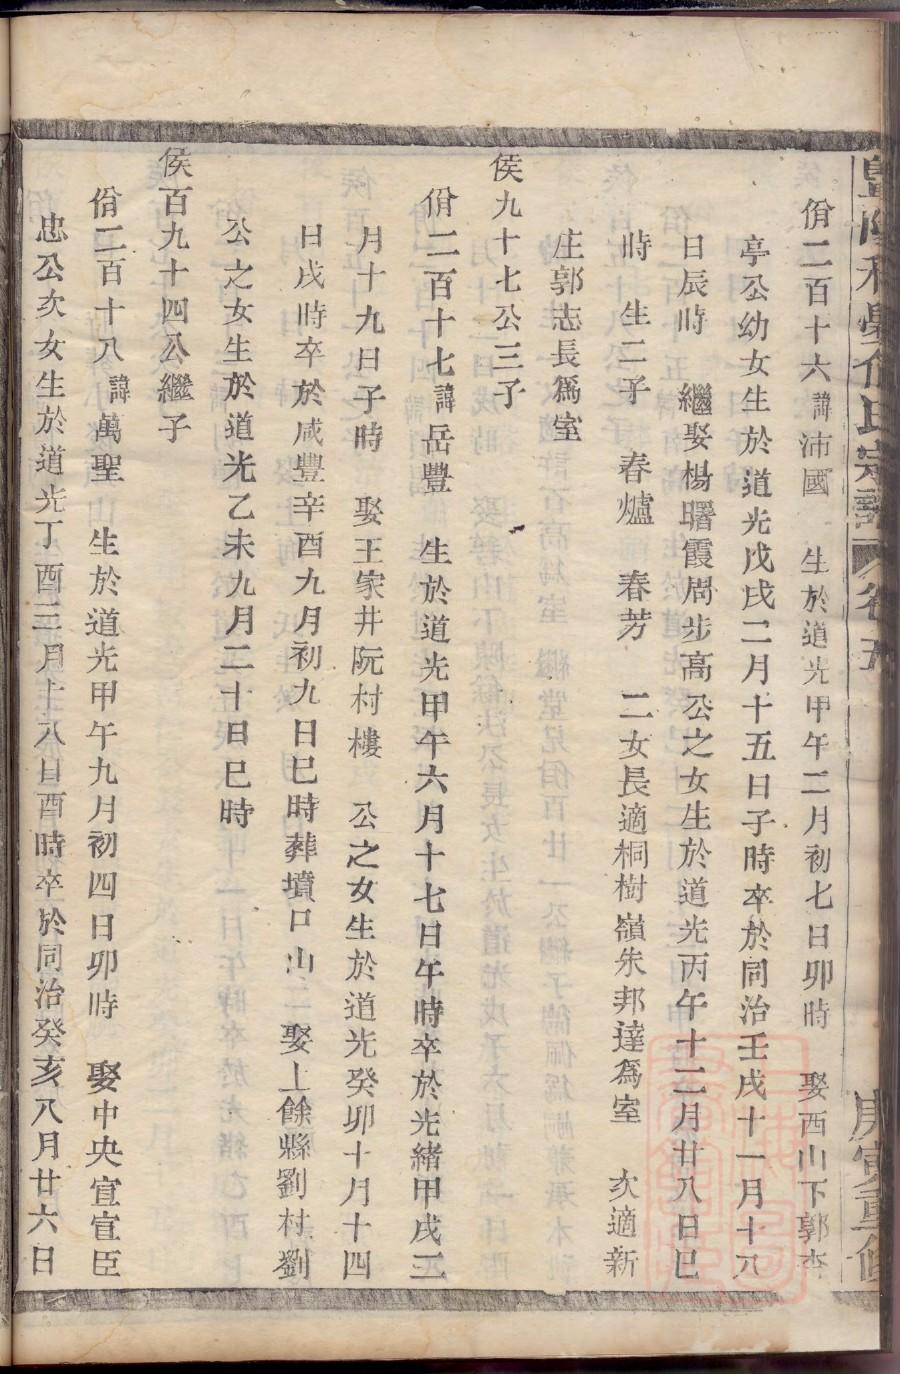 佾二百十六諱沛國 生於道光甲午二月初七日卯時 娶西山下郭李
亭公幼女生於道光戊戌二月十五日子時卒於同治壬戌十一月十八
日辰時 繼娶楊曙霞周步高公之女生於道光丙午十二月廿八日巳
時 生二子 春爐 春芳 二女長適桐樹嶺朱邦達爲室 次適新
庄郭志長爲室
侯九十七公三子
佾二百十七諱岳豐 生於道光甲午六月十七日午時卒於光緒甲戌三
月十九日子時 娶王家井阮村樓 公之女生於道光癸卯十月十四
日戌時卒於咸豐辛酉九月初九日巳時葬墳口山二 娶上餘縣劉村劉
公之女生於道光乙未九月二十日巳時
侯百九十四公繼子
佾二百十八諱萬聖 生於道光甲午九月初四日卯時 娶中央宣宣臣
忠公次女生於道光丁酉三月十八日酉時卒於同治癸亥八月廿六日
氏宗譜 卷五 庚寅重修